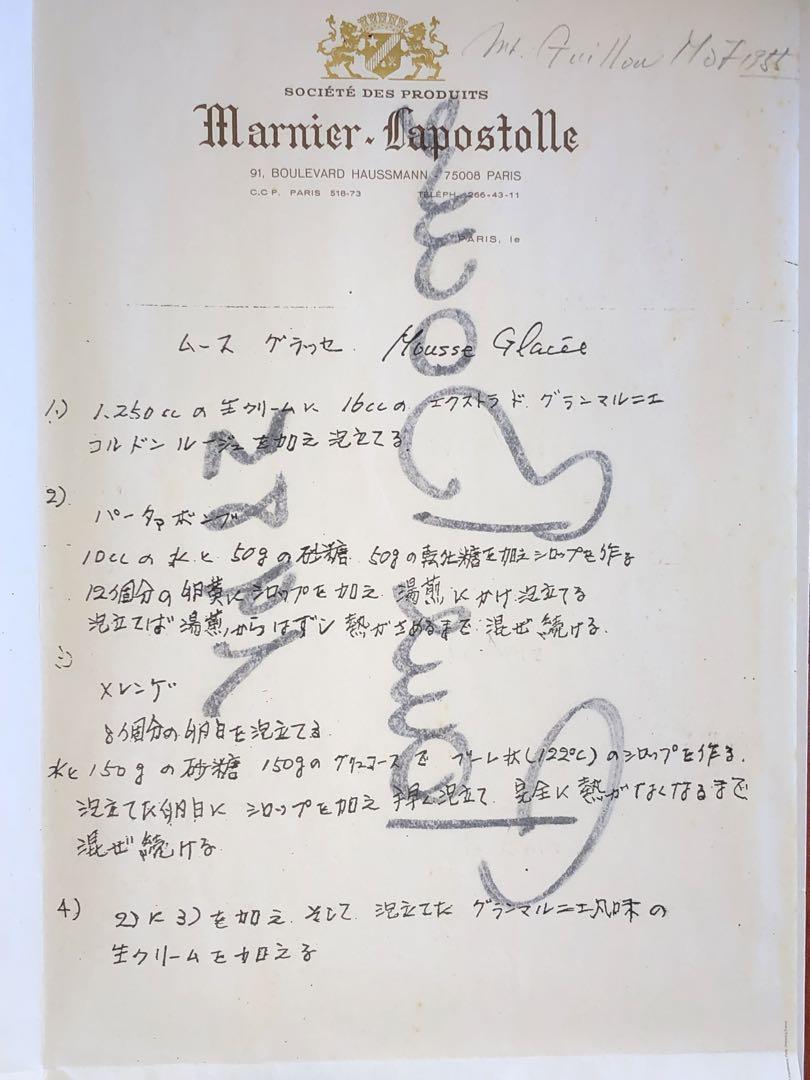 Mt. Guillou MOF 1955
SOCIÉTÉ DES PRODUITS
Marnier-Lapostolle
91, BOULEVARD HAUSSMANN - 75008 PARIS
C.C.P. PARIS 518-73 TÉLÉPH. 266-43-11
PARIS, le
ムース グラッセ. Mousse Glacée
1.) 1.250ccの生クリームに 16ccの エクストラド.グランマルニエ
コルドン ルージュを加え 泡立てる.
2)
パータアボンブ
10ccの水と 50gの砂糖. 50gの転化糖を加えシロップを作る
12個分の卵黄にシロップを加え 湯煎にかけ.泡立てる
泡立てば湯煎からはずし 熱がさめるまで 混ぜ続ける.
3)
メレンゲ
8個分の卵白を泡立てる.
水と150gの砂糖 150gのグリュコースで ブーレ状(122℃)のシロップを作る.
泡立てた卵白に シロップを加え 手早く泡立て. 完全に熱がなくなるまで
混ぜ続ける
4) 2)に3)を加え. そして 泡立てた グランマルニエ風味の
生クリームを加える